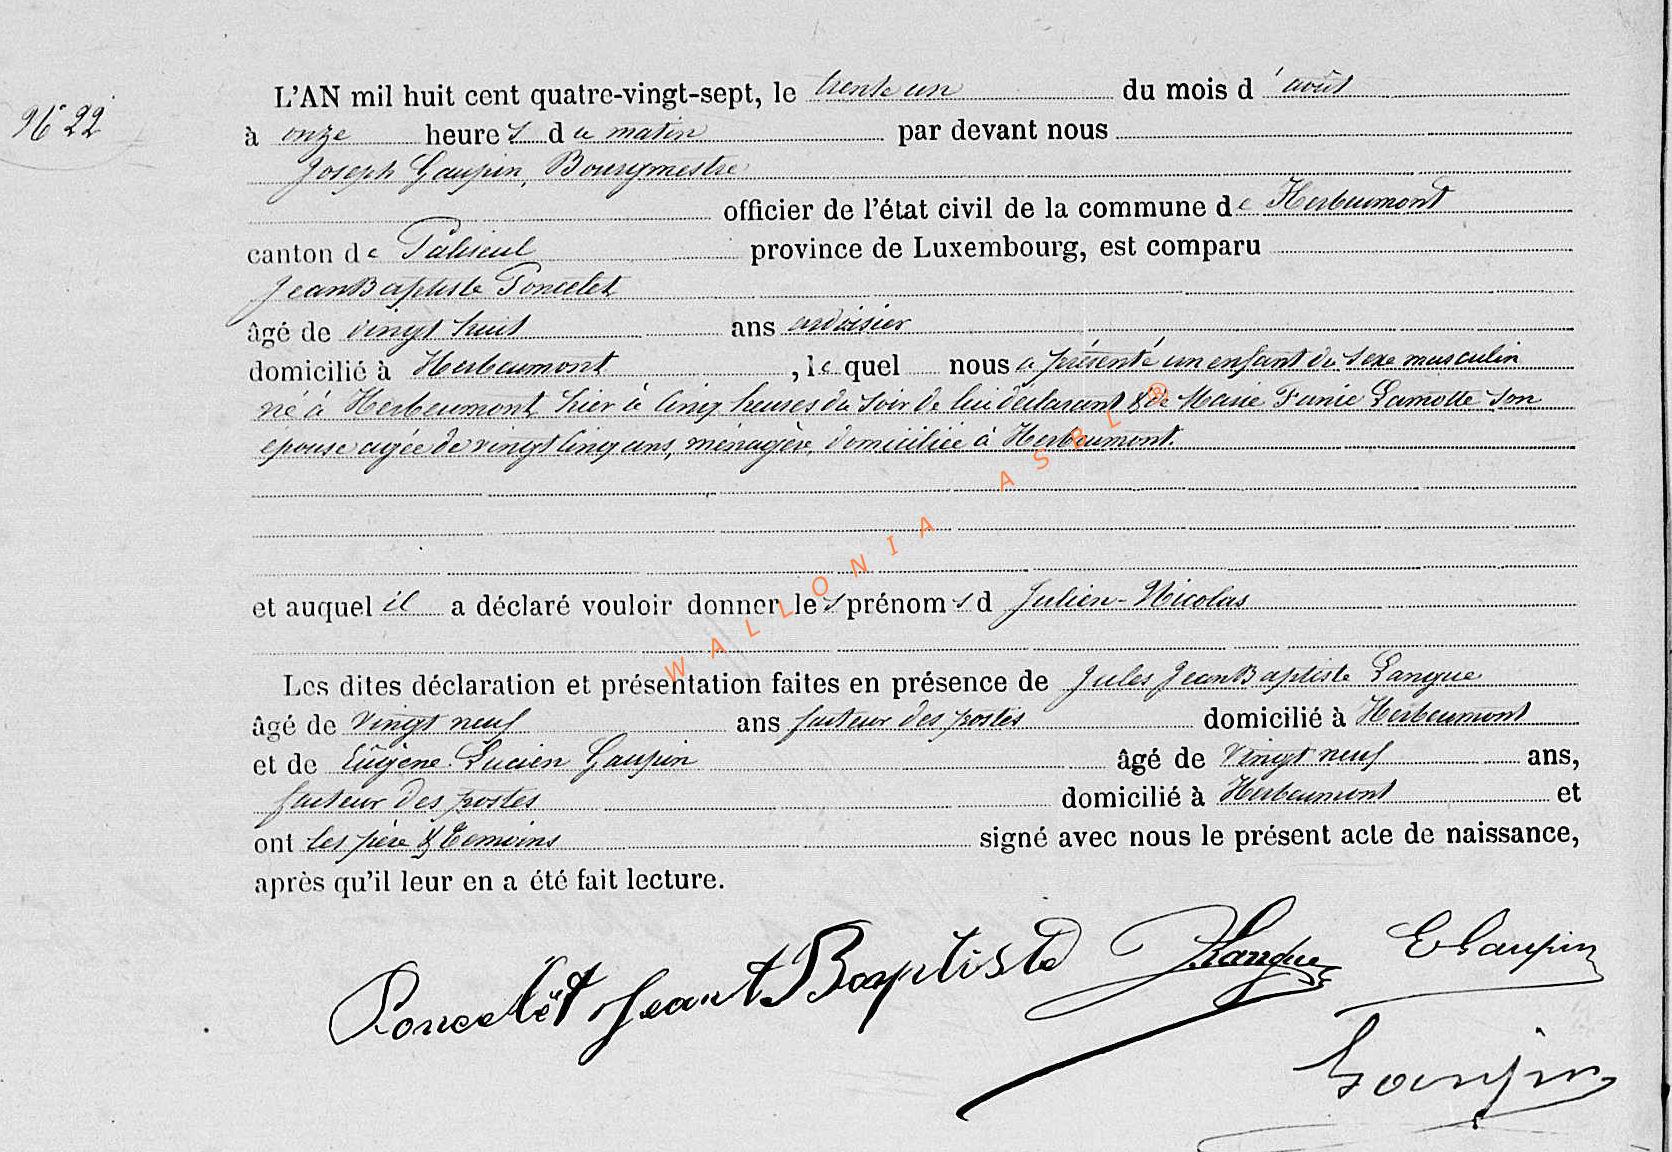 N° 22
L'AN mil huit cent quatre-vingt-sept, le trente un du mois d'août
à onze heures du matin par devant nous
Joseph Gaupin, Bourgmestre
officier de l'état civil de la commune de Herbeumont
canton de Paliseul province de Luxembourg, est comparu
Jean Baptiste Poncelet
âgé de vingt huit ans ardoisier
domicilié à Herbeumont, lequel nous a présenté un enfant du sexe masculin
né à Herbeumont hier à cinq heures du soir de lui déclarant & de Marie Fanie Lamotte son
épouse agée de vingt cinq ans, ménagère, domiciliée à Herbeumont.
et auquel il a déclaré vouloir donner les prénoms d Julien-Nicolas
Les dites déclaration et présentation faites en présence de Jules Jean Baptiste Langue
âgé de vingt neuf ans facteur des postes domicilié à Herbeumont
et de Eugène Lucien Gaupin âgé de vingt neuf ans,
facteur des postes domicilié à Herbeumont et
ont les père & témoins signé avec nous le présent acte de naissance,
après qu'il leur en a été fait lecture.
Poncelet Jean Baptiste JLangue E Gaupin
Gaupin
WALLONIA ASBL ®